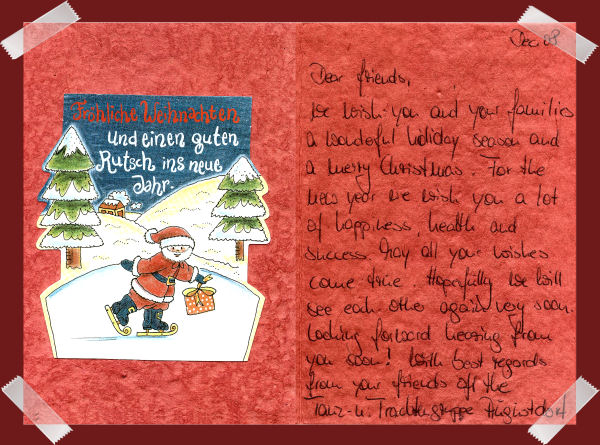 Fröhliche Weihnachten
und einen guten
Rutsch ins neue
Jahr.
Dec 08
Dear friends,
we wish you and your families
a wonderful holiday season and
a merry Christmas. For the
new year we wish you a lot
of happiness, health and
success. May all your wishes
come true. Hopefully we will
see each other again very soon.
Looking forward hearing from
you soon! With best regards
from your friends off the
Tanz- u. Trachtengruppe